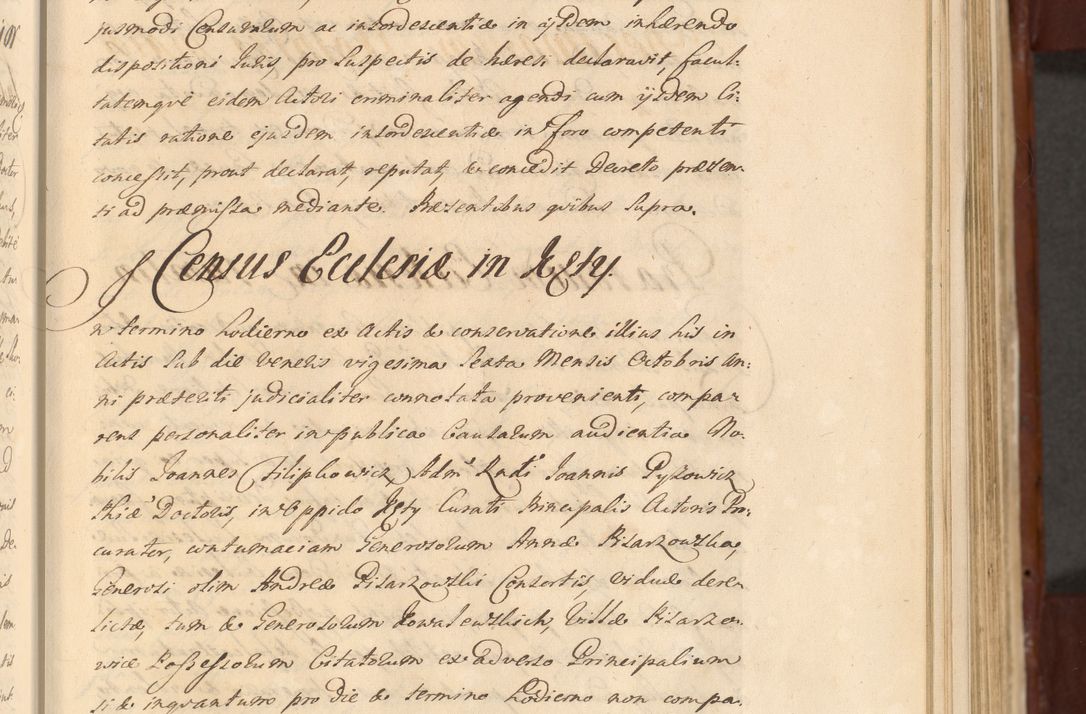 jusmodi Censurarum ac insordescentiæ in ijsdem inhærendo
dispositioni Juris, pro suspectis de hæresi declaravit, facul-
tatemque eidem Actori criminaliter agendi cum ijsdem Ci-
tatis ratione ejusdem insordescentiæ in foro competenti
concessit, prout declarat, reputat, & concedit Decreto præsen-
ti ad præmissa mediante. Præsentibus quibus supra.
Census Ecclesiæ in Kęty.
In termino hodierno ex Actis & conservatione illius his in
Actis sub die Veneris vigesima sexta Mensis Octobris An-
ni præteriti judicialiter connotata provenienti, compar
rens personaliter in publica Causarum audientia No-
bilis Joannes Filipkowicz, Admꞏ Rndi Joannis Pyzowicz
Phiæ Doctoris, in Oppido Kęty Curati Principalis Actoris Pro-
curator, contumaciam Generosorum Annæ Pisarzowska,
Generosi olim Andreæ Pisarzowski Consortis, viduæ dere-
lictæ, tum & Generosorum Kowalewskich, Villæ Pisarzo-
wice Possessorum Citatorum ex adverso Principalium
si & inquantum pro die & termino hodierno non compa-